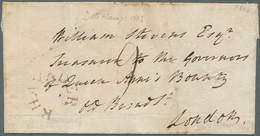 William Stevens Esqr.
Treasurer to the Governors
of Queen Ann's Bounty
Old Broad St.
London